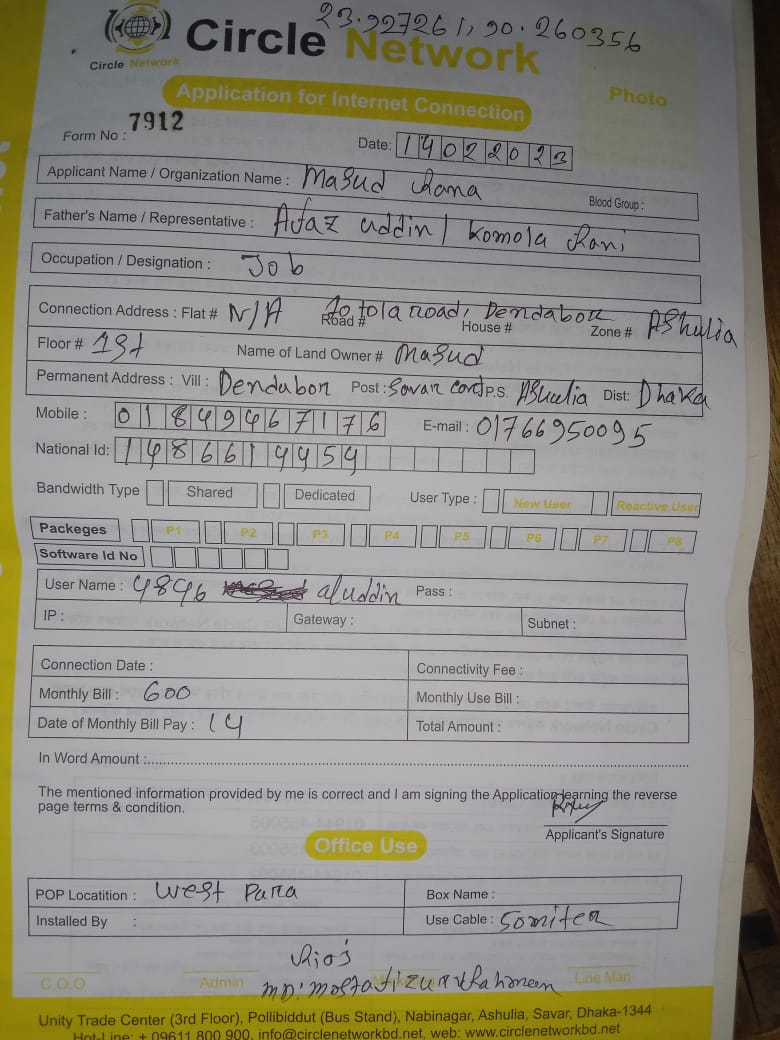 23.927261, 90.260356
Circle Network
Circle Network
Application for Internet Connection
Photo
Form No : 7912
Date: 14022023
Applicant Name / Organization Name : Masud Rana Blood Group :
Father's Name / Representative : Afaz uddin / Komola Rani
Occupation / Designation : Job
Connection Address : Flat # N/A Road # tola road, Dendabor House # Zone # AShulia
Floor # 1st Name of Land Owner # Masud
Permanent Address : Vill : Dendabor Post : Savar Cant P.S. AShulia Dist: Dhaka
Mobile : 01849467176 E-mail : 01766950095
National Id: 1486619459
Bandwidth Type Shared Dedicated User Type : New User Reactive User
Packeges P1 P2 P3 P4 P5 P6 P7 P8
Software Id No
User Name : 4896 aluddin Pass :
IP : Gateway : Subnet :
Connection Date : Connectivity Fee :
Monthly Bill : 600 Monthly Use Bill :
Date of Monthly Bill Pay : 14 Total Amount :
In Word Amount :
The mentioned information provided by me is correct and I am signing the Application learning the reverse
page terms & condition.
Applicant's Signature
Office Use
POP Locatition : West Para Box Name :
Installed By : Use Cable : 50 miter
C.O.O Admin Line Man
MD: Mostafizur Rahman
Unity Trade Center (3rd Floor), Pollibiddut (Bus Stand), Nabinagar, Ashulia, Savar, Dhaka-1344
Hot-Line: + 09611 800 900, info@circlenetworkbd.net, web: www.circlenetworkbd.net